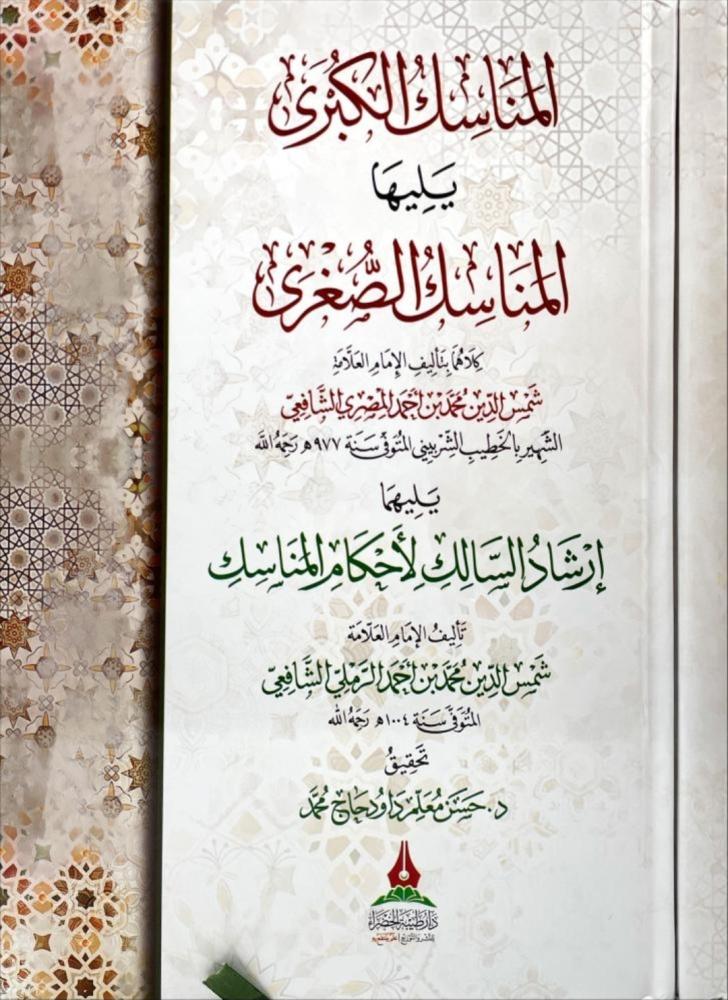 المَنَاسِكُ الكُبْرَى
يَلِيهَا
المَنَاسِكُ الصُّغْرَى
كِلَاهُمَا بِتَأْلِيفِ الإِمَامِ العَلَّامَةِ
شَمْسِ الدِّين مُحَمَّد بْن أَحْمَد المِصْرِي الشَّافِعِيّ
الشَّهِيرِ بِالخَطِيبِ الشِّرْبِينِيِّ المُتَوَفَّى سَنَة ٩٧٧ هـ رَحِمَهُ اللَّه
يَلِيهِمَا
إِرْشَادُ السَّالِكِ لِأَحْكَامِ المَنَاسِكِ
تَأْلِيفُ الإِمَامِ العَلَّامَة
شَمْسِ الدِّين مُحَمَّد بْن أَحْمَد الرَّمْلِيّ الشَّافِعِيّ
المُتَوَفَّى سَنَة ١٠٠٤ هـ رَحِمَهُ اللَّه
تَحْقِيقُ
د. حَسَن مُعَلِّم دَاوُد حَاج مُحَمَّد
دَارُ طَيْبَةَ الخَضْرَاء
للنشر والتوزيع | علم ينتفع به